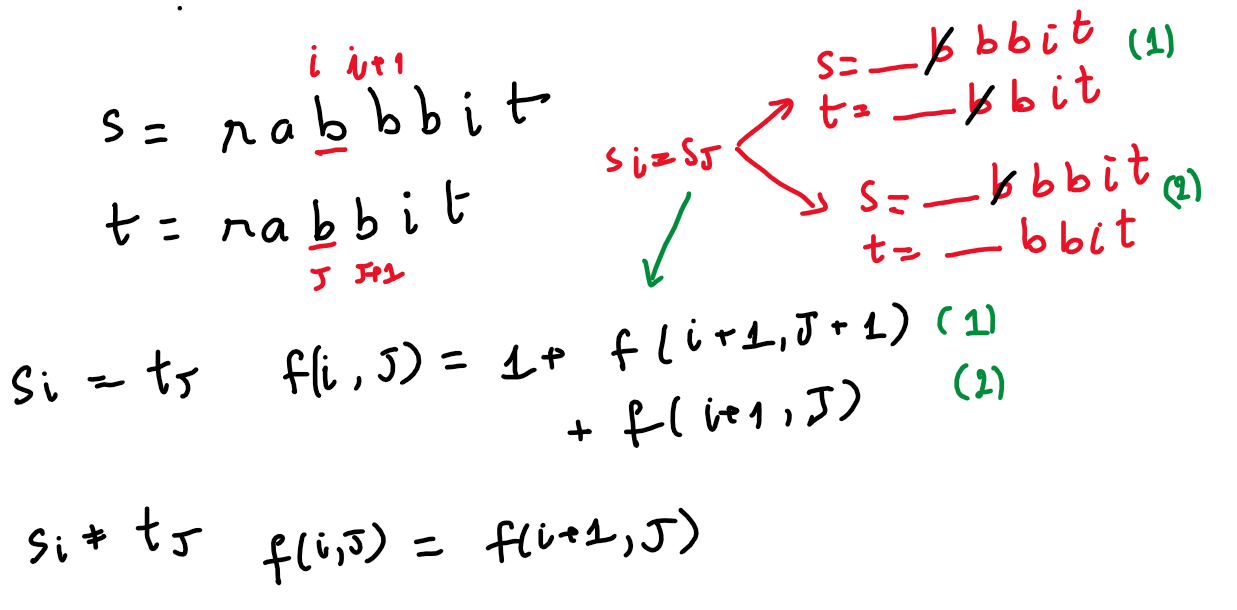 i i+1
s = rabbbit
t = rabbit
J J+1
si=sJ
s= _ b b b i t (1)
t= _ b b i t
s= _ b b b i t (2)
t= _ b b i t
si = tJ f(i, J) = 1 + f(i+1, J+1) (1)
+ f(i+1, J) (2)
si ≠ tJ f(i,J) = f(i+1, J)